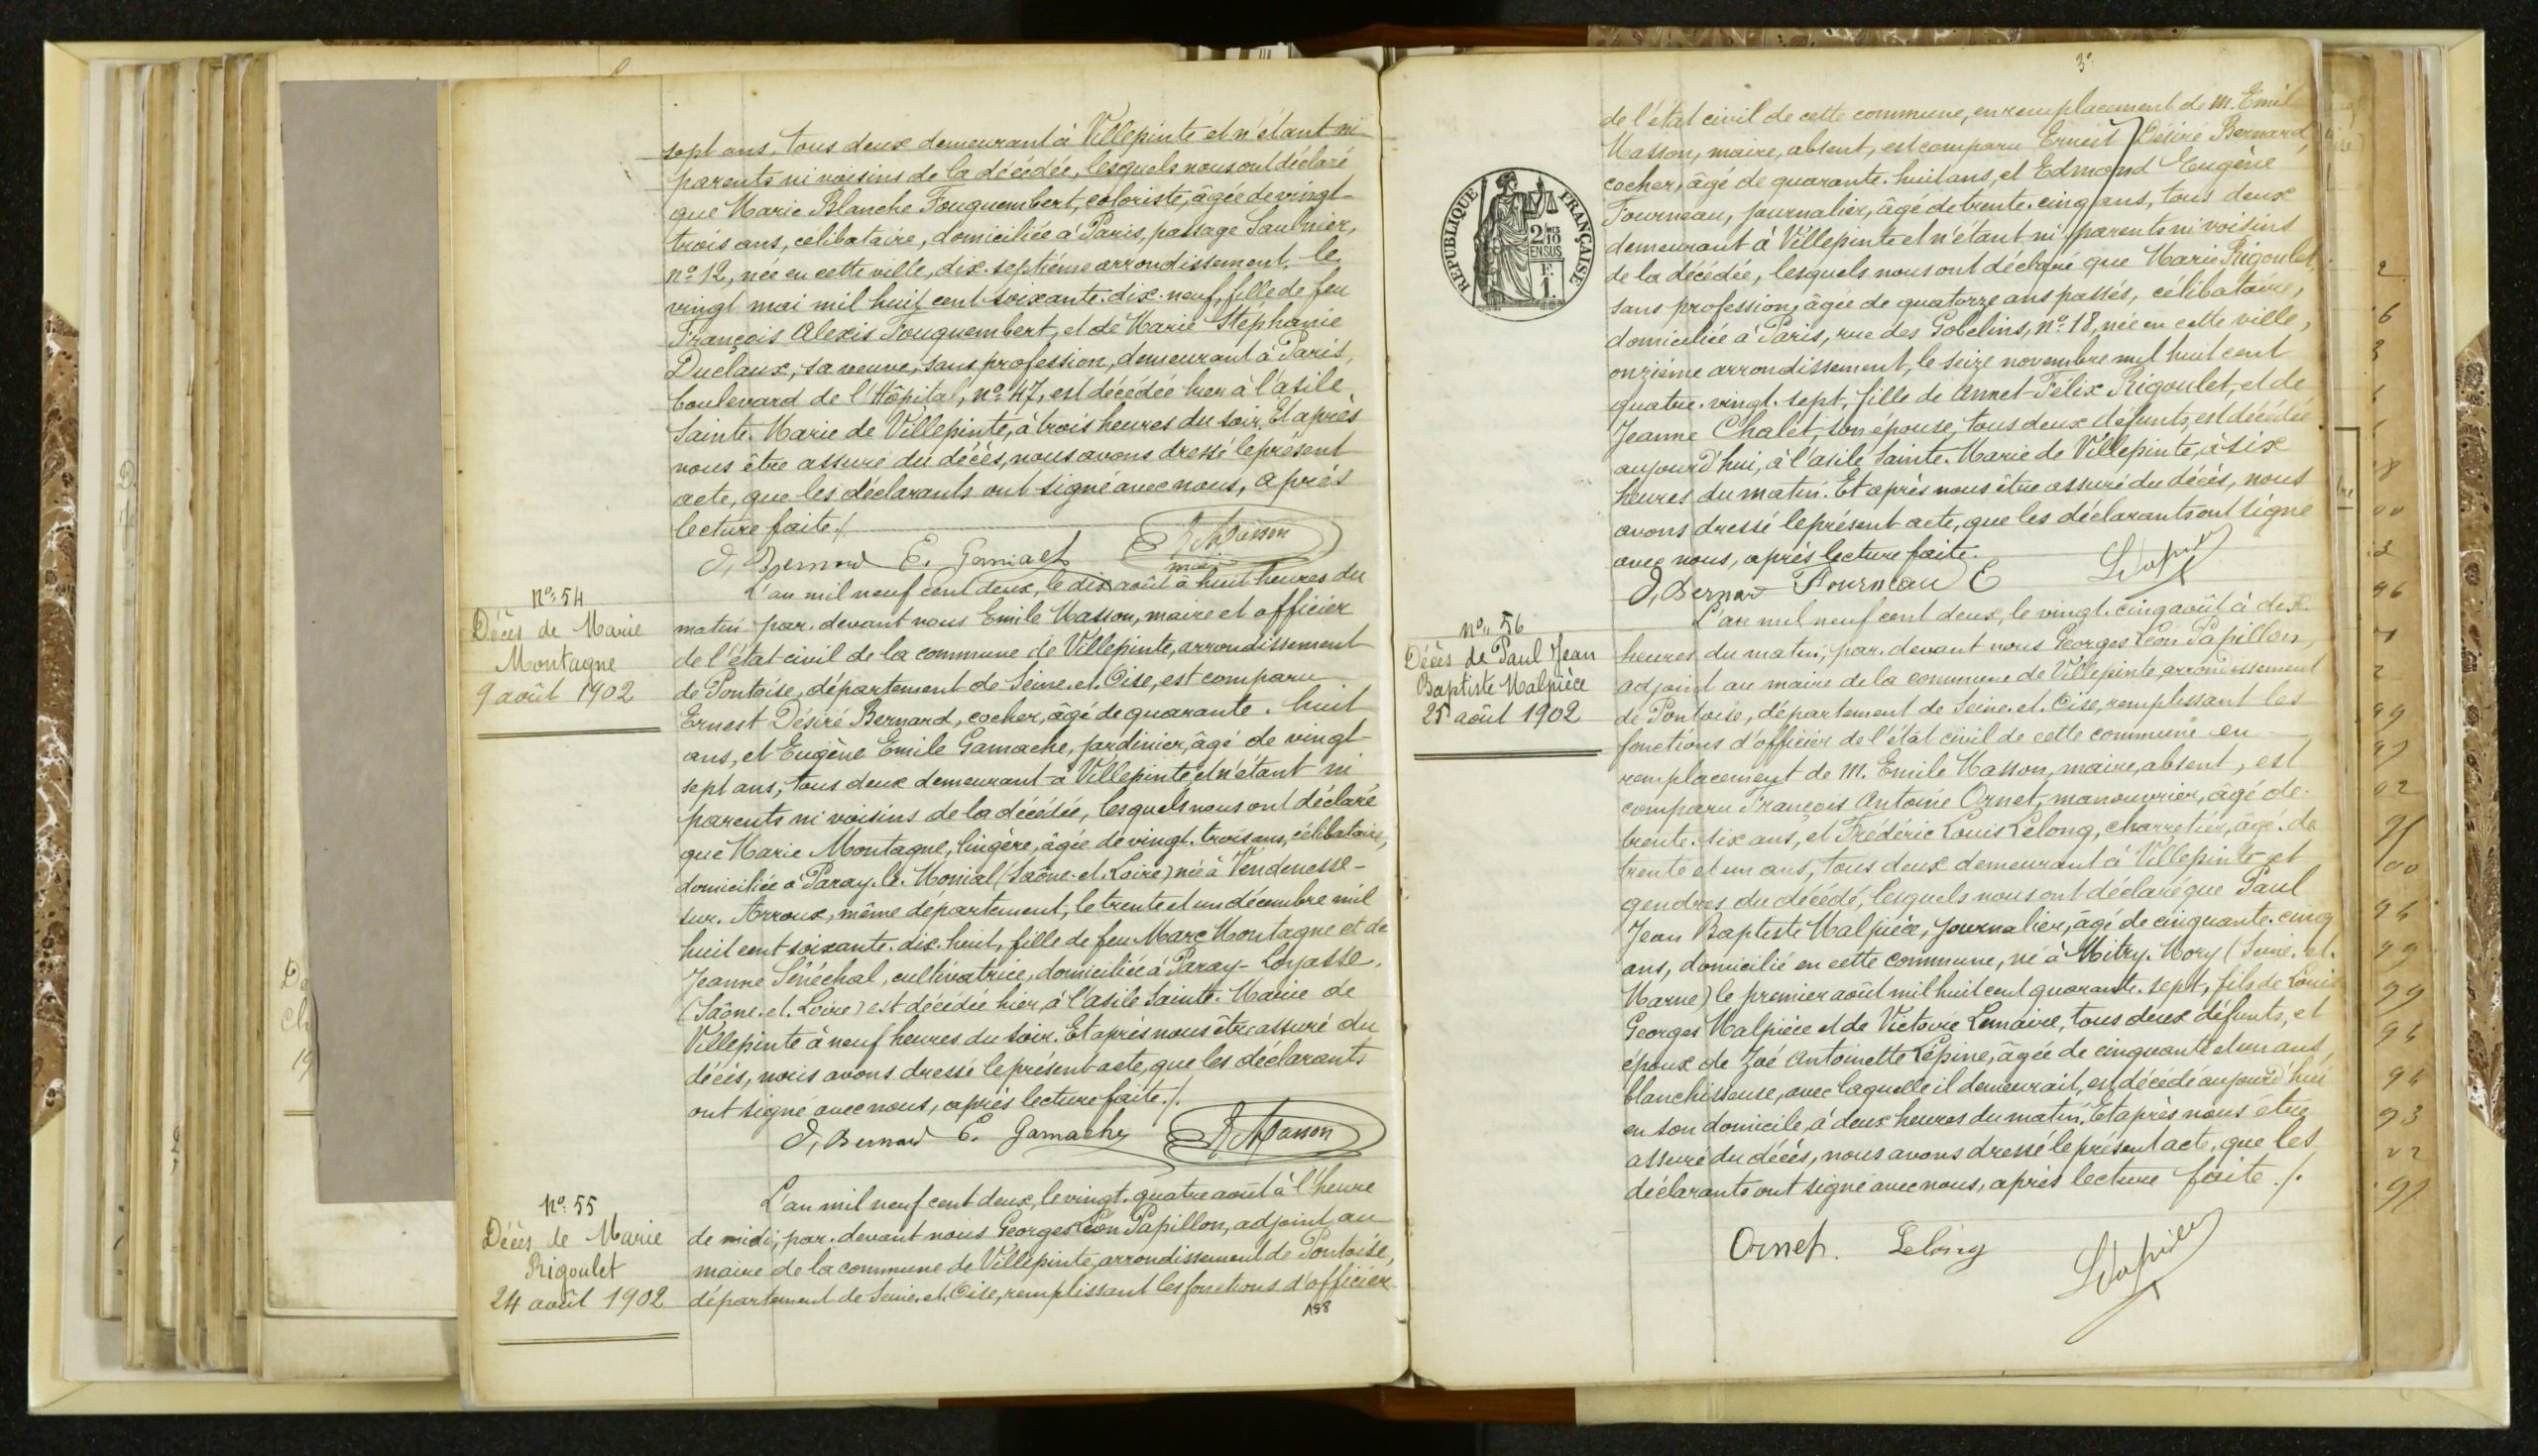 sept ans, tous deux demeurant à Villepinte et n'étant ni
parents ni voisins de la décédée, lesquels nous ont déclaré
que Marie Blanche Fouquembert, coloriste, âgée de vingt-
trois ans, célibataire, domiciliée à Paris, passage Saulnier,
n° 12, née en cette ville, dix-septième arrondissement, le
vingt mai mil huit cent soixante-dix-neuf, fille de feu
François Alexis Fouquembert, et de Marie Stéphanie
Duclaux, sa veuve, sans profession, demeurant à Paris,
boulevard de l'Hôpital, n° 47, est décédée hier à l'asile
Sainte-Marie de Villepinte, à trois heures du soir. Et après
nous être assuré du décès, nous avons dressé le présent
acte, que les déclarants ont signé avec nous, après
lecture faite./.
D, Bernard E. Gamache E Masson
N° 54
Décès de Marie
Montagne
9 août 1902
L'an mil neuf cent deux, le dix août à huit heures du
matin par-devant nous Emile Masson, maire et officier
de l'état civil de la commune de Villepinte, arrondissement
de Pontoise, département de Seine-et-Oise, est comparu
Ernest Désiré Bernard, cocher, âgé de quarante-huit
ans, et Eugène Emile Gamache, jardinier, âgé de vingt-
sept ans, tous deux demeurant à Villepinte et n'étant ni
parents ni voisins de la décédée, lesquels nous ont déclaré
que Marie Montagne, lingère, âgée de vingt-trois ans, célibataire,
domiciliée à Paray-le-Monial (Saône-et-Loire) née à Vendenesse-
sur-Arroux, même département, le trente et un décembre mil
huit cent soixante-dix-huit, fille de feu Marc Montagne et de
Jeanne Sénéchal, cultivatrice, domiciliée à Paray-Loyasse.
(Saône-et-Loire) est décédée hier, à l'asile Sainte-Marie de
Villepinte à neuf heures du soir. Et après nous être assuré du
décès, nous avons dressé le présent acte, que les déclarants
ont signé avec nous, après lecture faite./.
D, Bernard E. Gamache E Masson
N° 55
Décès de Marie
Rigoulet
24 août 1902
L'an mil neuf cent deux, le vingt-quatre août à l'heure
de midi, par-devant nous Georges Léon Papillon, adjoint au
maire de la commune de Villepinte, arrondissement de Pontoise,
département de Seine-et-Oise, remplissant les fonctions d'officier
158
3°
de l'état civil de cette commune, en remplacement de M. Emile
Masson, maire, absent, est comparu Ernest Désiré Bernard,
cocher, âgé de quarante-huit ans, et Edmond Eugène
Fourneau, journalier, âgé de trente-cinq ans, tous deux
demeurant à Villepinte et n'étant ni parents ni voisins
de la décédée, lesquels nous ont déclaré que Marie Rigoulet,
sans profession, âgée de quatorze ans passés, célibataire,
domiciliée à Paris, rue des Gobelins, n° 18, née en cette ville,
onzième arrondissement, le seize novembre mil huit cent
quatre-vingt-sept, fille de Annet-Félix Rigoulet, et de
Jeanne Chalet, son épouse, tous deux défunts, est décédée
aujourd'hui, à l'asile Sainte-Marie de Villepinte, à six
heures du matin. Et après nous être assuré du décès, nous
avons dressé le présent acte, que les déclarants ont signé
avec nous, après lecture faite.
D, Bernard Fourneau E
RÉPUBLIQUE FRANÇAISE
2/10
EN SUS
1 F.
N° 56
Décès de Paul Jean
Baptiste Malpièce
25 août 1902
L'an mil neuf cent deux, le vingt-cinq août à dix
heures du matin, par-devant nous Georges Léon Papillon,
adjoint au maire de la commune de Villepinte, arrondissement
de Pontoise, département de Seine-et-Oise, remplissant les
fonctions d'officier de l'état civil de cette commune en
remplacement de M. Emile Masson, maire, absent, est
comparu François Antoine Ornet, manouvrier, âgé de
trente-six ans, et Frédéric Louis Lelong, charretier, âgé de
trente et un ans, tous deux demeurant à Villepinte et
gendres du décédé, lesquels nous ont déclaré que Paul
Jean Baptiste Malpièce, journalier, âgé de cinquante-cinq
ans, domicilié en cette commune, né à Mitry-Mory (Seine-et-
Marne) le premier août mil huit cent quarante-sept, fils de Louis
Georges Malpièce et de Victoire Lemaire, tous deux défunts, et
époux de Zoé Antoinette Lépine, âgée de cinquante et un ans,
blanchisseuse, avec laquelle il demeurait, est décédé aujourd'hui
en son domicile, à deux heures du matin. Et après nous être
assuré du décès, nous avons dressé le présent acte, que les
déclarants ont signé avec nous, après lecture faite./.
Ornet. Lelong